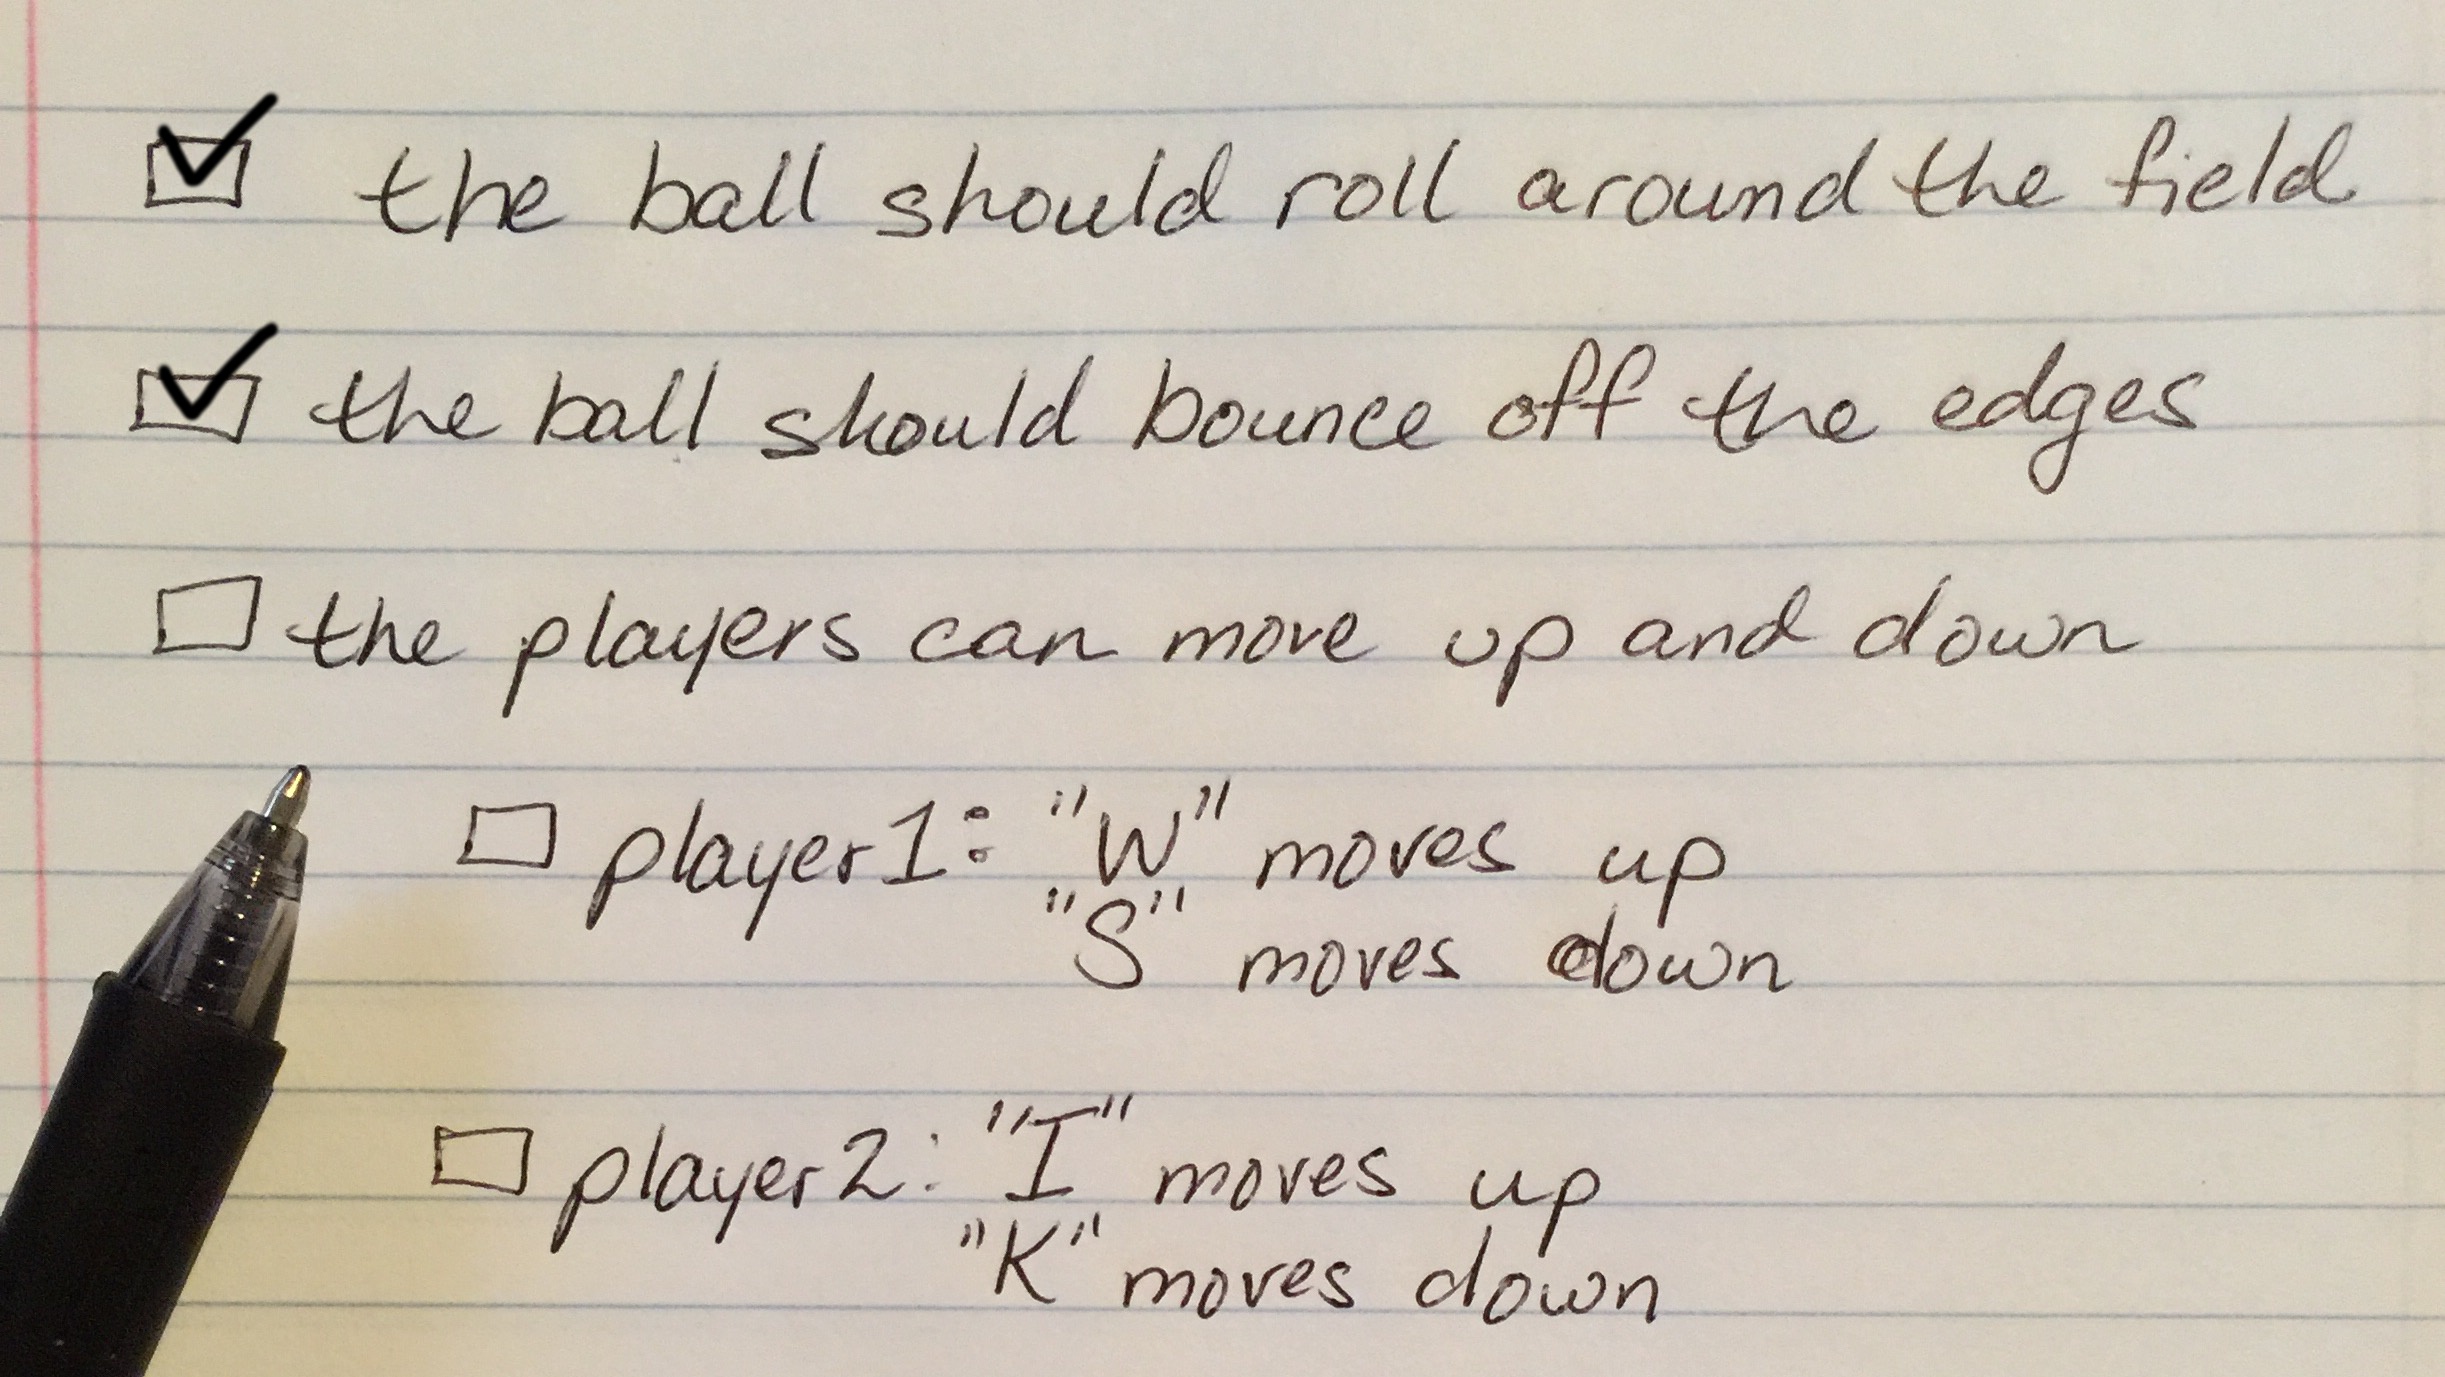 the ball should roll around the field
the ball should bounce off the edges
the players can move up and down
player1: "W" moves up
"S" moves down
player2: "I" moves up
"K" moves down